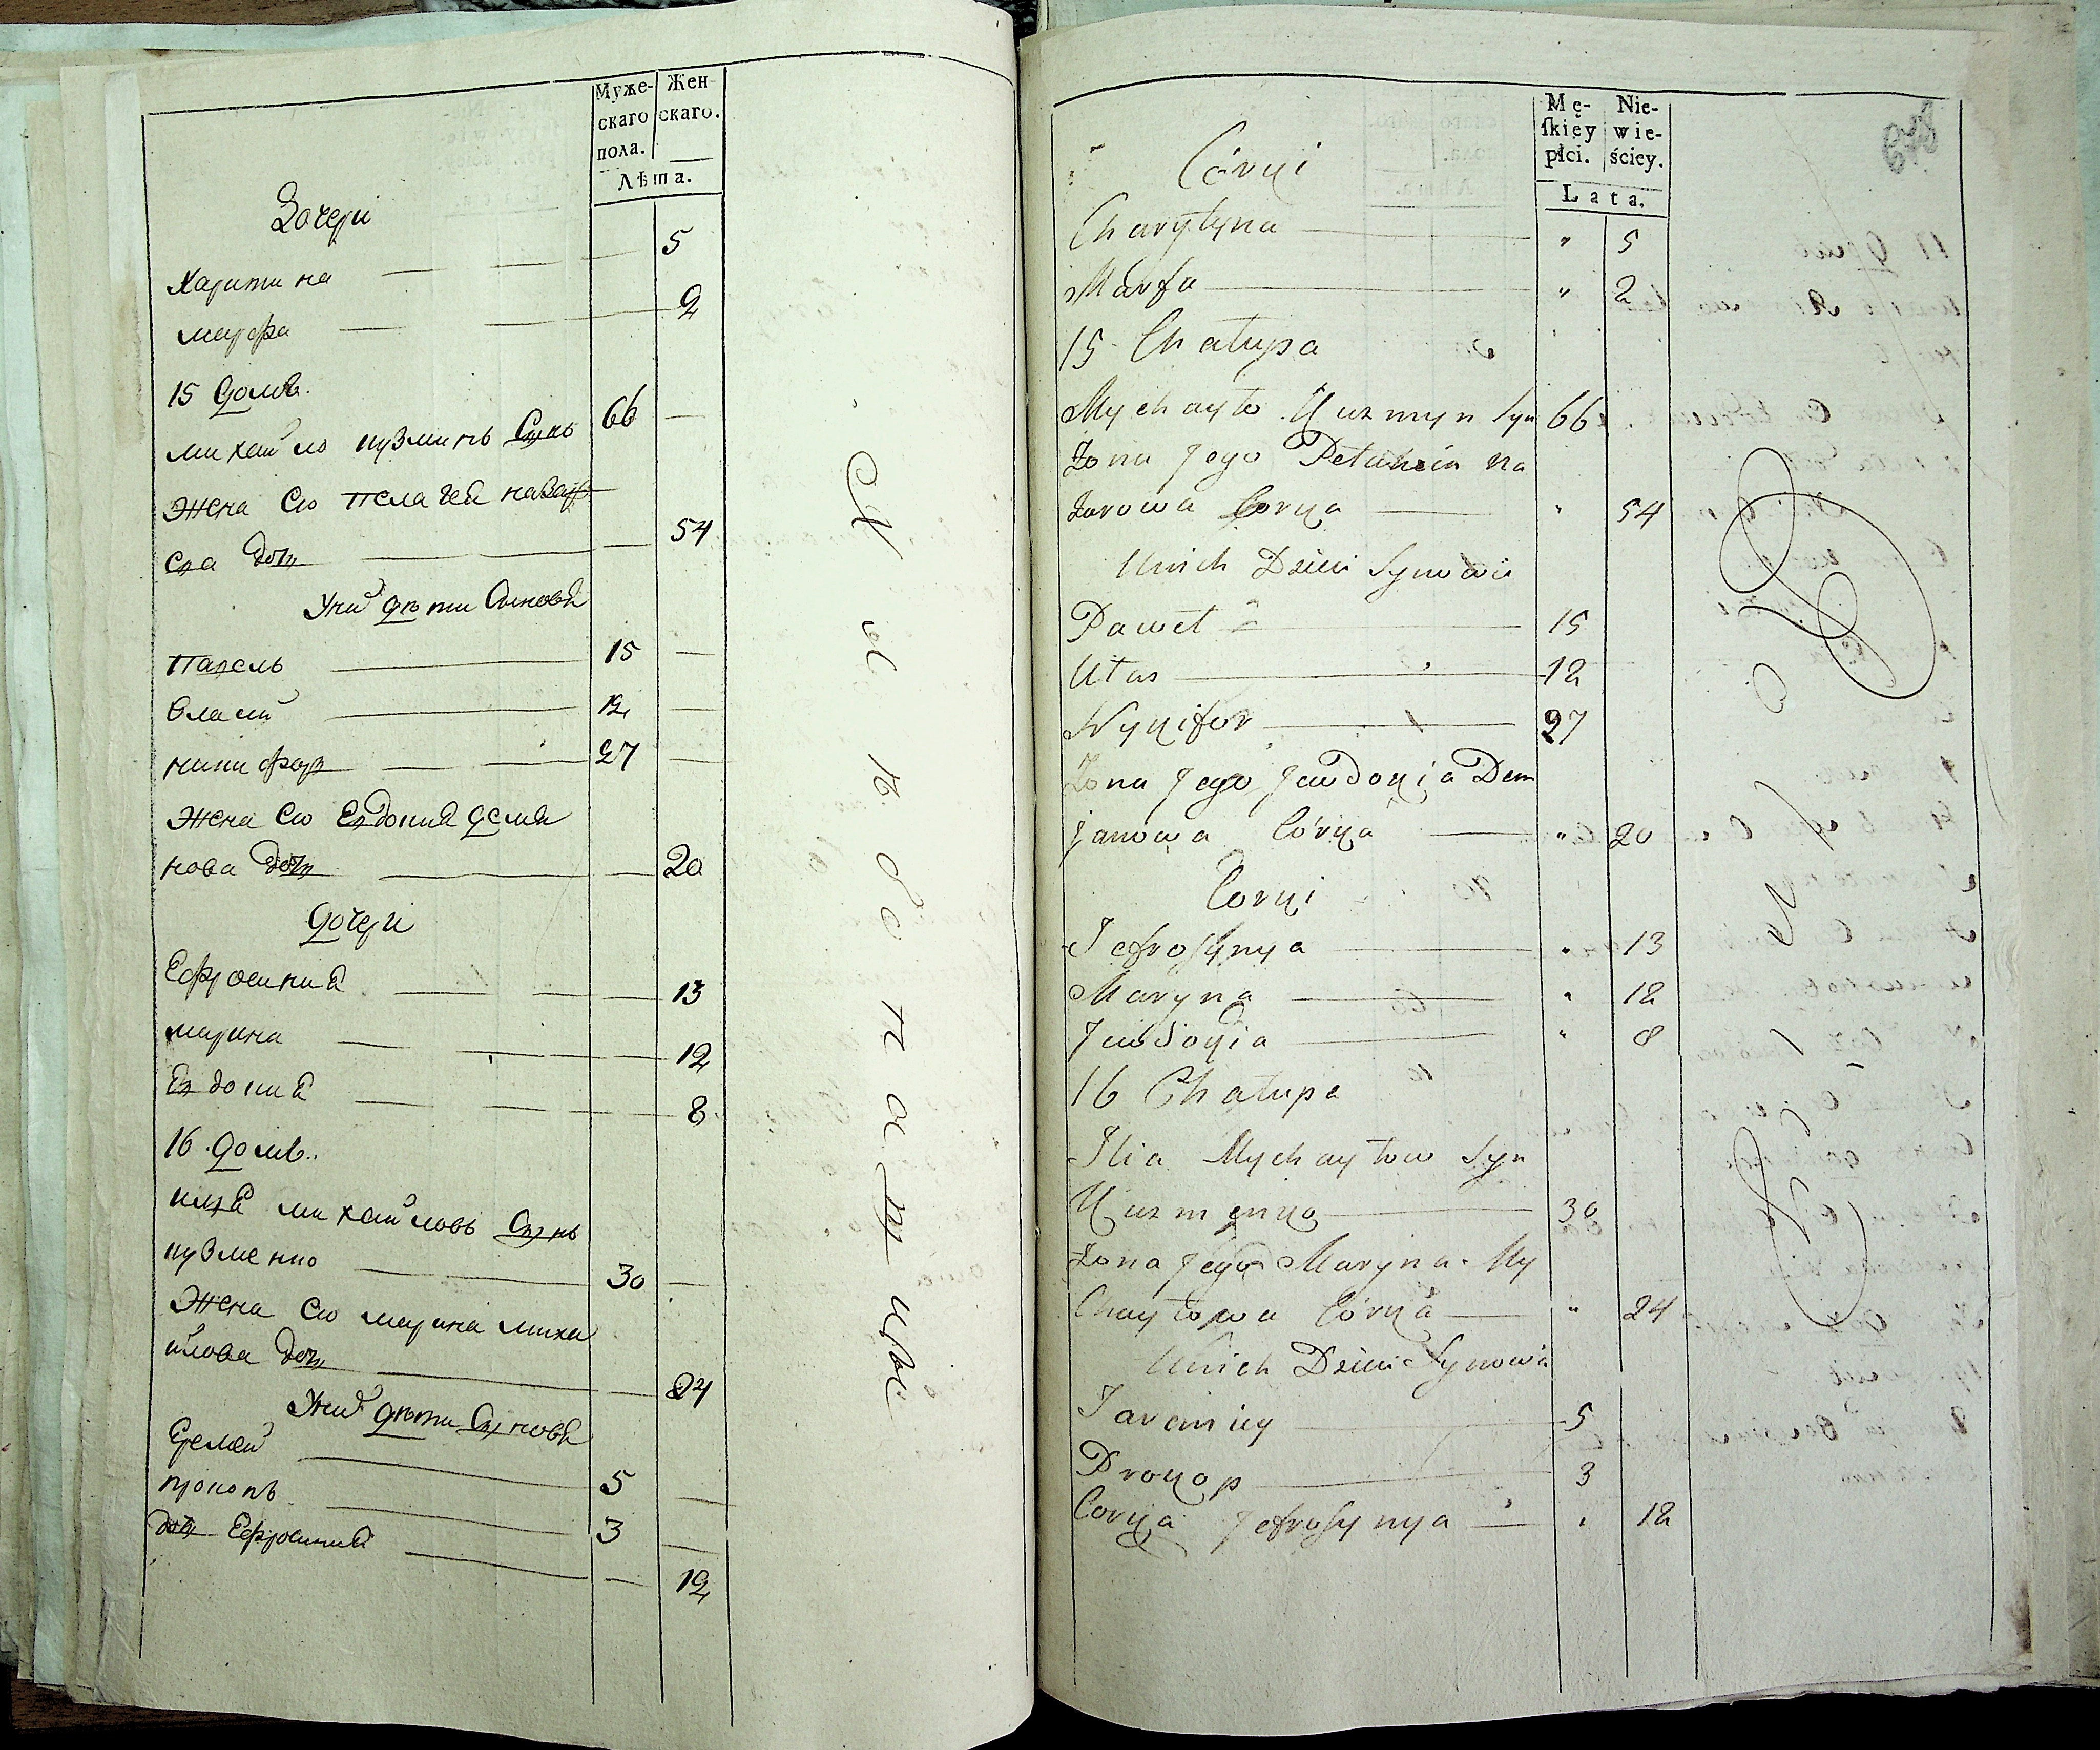 Муже-
скаго
пола.
Жен-
скаго.
Лѣта.
Дочери
Харитина 5
марфа 2
15 домъ.
михайло кузминъ Сынъ 66
жена Его пелагея назар
ова дочь 54
У них дѣти Сыновя
павель 15
власий 12
никифор 27
жена Его Евдокия демя
нова дочь 20
дочери
Ефросиния 13
марина 12
Евдокия 8
16 домъ.
илия михайловъ Сынъ
кузменко 30
жена Его марина миха
илова дочь 24
У них дѣти Сыновя
Еремей 5
прокопъ 3
дочь Ефросиния 12
Mę-
ſkiey
płci.
Nie-
wie-
ściey.
Lata.
Córki
Charytyna " 5
Marfa " 2
15 Chałupa
Mychayło Kuzmyn Syn 66
Żona Jego Na
zarowa Corka " 54
U nich Dzieci Synowie
Paweł 15
Ułas 12
Nykifor 27
Żona Jego Jewdokia Dem
janowa Córka " 20
Corki
Jefrosynya " 13
Maryna " 12
Jewdokia " 8
16 Chałupa
Ilia Mychayłow Syn
Kuzmenko 30
Żona Jego Maryna My
Chayłowa Córka " 24
U nich Dzieci Synowie
Jaremiey 5
Prokop 3
Corka Jefrosynya " 12